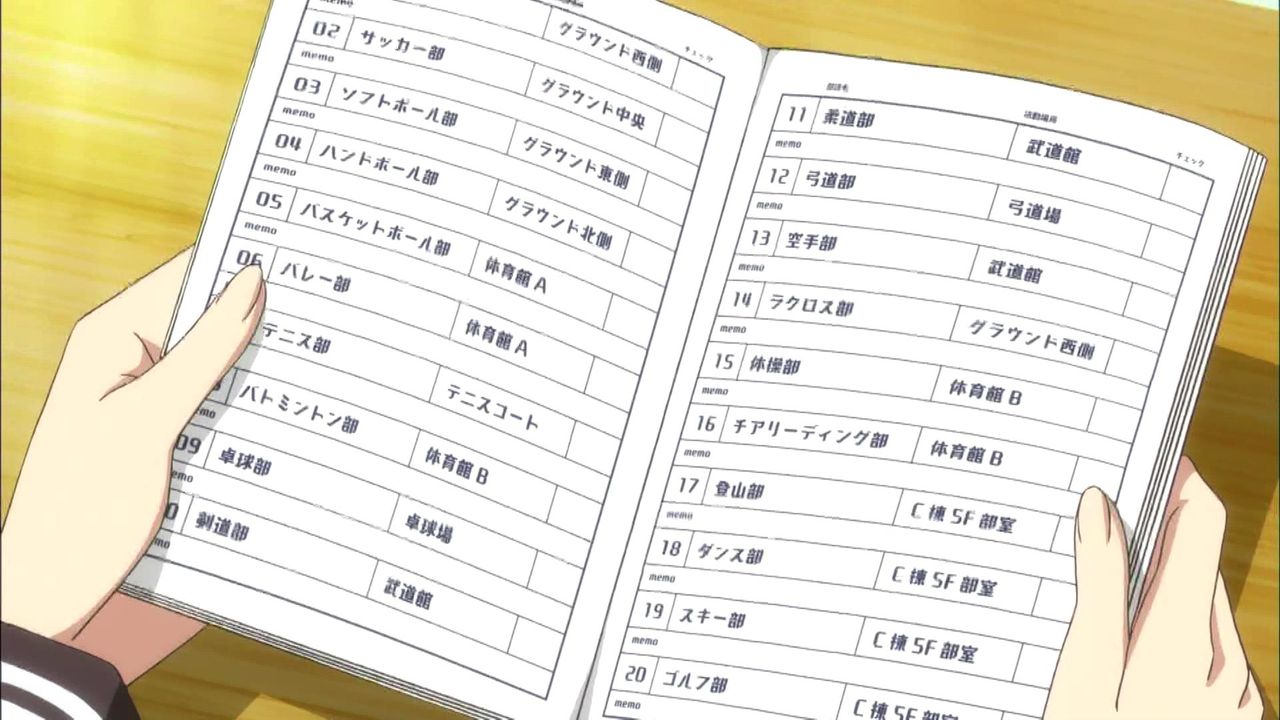 memo
グラウンド西側
チェック
02 サッカー部 グラウンド中央
memo
03 ソフトボール部 グラウンド東側
memo
04 ハンドボール部 グラウンド北側
memo
05 バスケットボール部 体育館 A
memo
06 バレー部 体育館 A
テニス部 テニスコート
バトミントン部 体育館 B
memo
09 卓球部 卓球場
memo
0 剣道部 武道館
memo
部活名 活動場所 チェック
11 柔道部 武道館
memo
12 弓道部 弓道場
memo
13 空手部 武道館
memo
14 ラクロス部 グラウンド西側
memo
15 体操部 体育館 B
memo
16 チアリーディング部 体育館 B
memo
17 登山部 C 棟 5F 部室
memo
18 ダンス部 C 棟 5F 部室
memo
19 スキー部 C 棟 5F 部室
memo
20 ゴルフ部 C 棟 5F 部室
memo